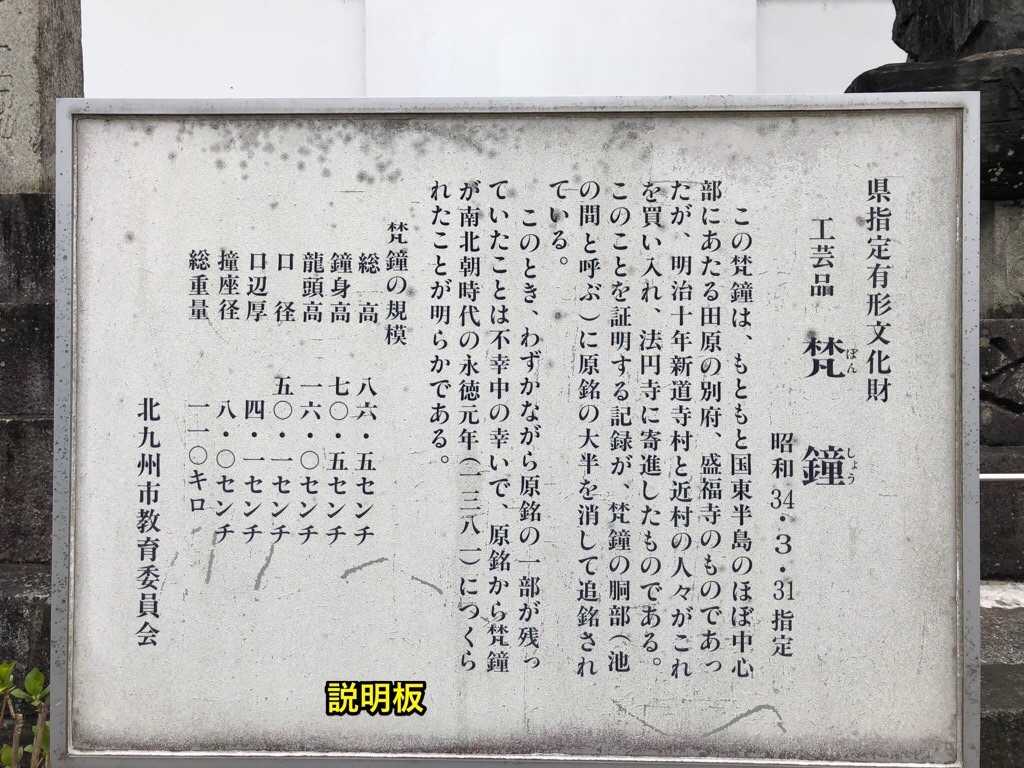 県指定有形文化財
工芸品 梵鐘
ぼん しょう
昭和34・3・31指定
この梵鐘は、もともと国東半島のほぼ中心
部にあたる田原の別府、盛福寺のものであっ
たが、明治十年新道寺村と近村の人々がこれ
を買い入れ、法円寺に寄進したものである。
このことを証明する記録が、梵鐘の胴部(池
の間と呼ぶ)に原銘の大半を消して追銘され
ている。
このとき、わずかながら原銘の一部が残っ
ていたことは不幸中の幸いで、原銘から梵鐘
が南北朝時代の永徳元年(一三八一)につくら
れたことが明らかである。
梵鐘の規模
総高 八六・五センチ
鐘身高 七〇・五センチ
龍頭高 一六・〇センチ
口径 五〇・一センチ
口辺厚 四・一センチ
撞座径 八・〇センチ
総重量 一一〇キロ
北九州市教育委員会
説明板